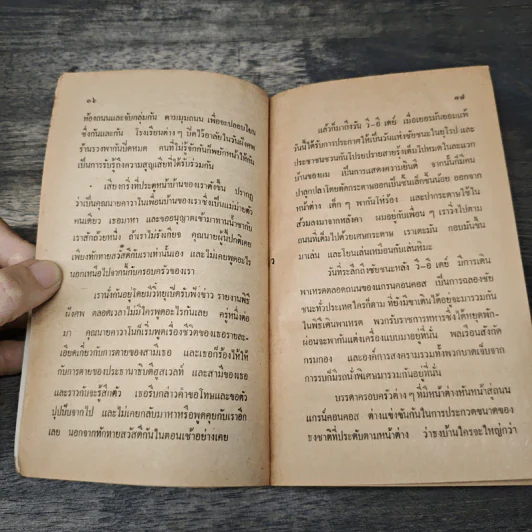 ๓๖
ท้องถนนและจับกลุ่มกัน ตามมุมถนน เพื่อจะปลอบโยน
ซึ่งกันและกัน โรงเรียนต่างๆ ปิดไว้อาลัยในวันฝังศพ
ร้านรวงพากันปิดหมด คนที่ไม่รู้จักกันก็พยักหน้าให้กัน
เป็นการรับรู้ถึงความสูญเสียที่ได้รับร่วมกัน
เสียงกริ่งที่ประตูหน้าบ้านของเราดังขึ้น ปรากฏ
ว่าเป็นคุณนายคาวาในเพื่อนบ้านของเราซึ่งเป็นแม่ม่ายตัว
คนเดียว เธอมาหา และขออนุญาตเข้ามาทานน้ำชากับ
เราสักถ้วยหนึ่ง ถ้าเราไม่รังเกียจ คุณนายผู้นี้ปกติเคย
เพียงทักทายสวัสดีกับเราเท่านั้นเอง และไม่เคยพูดอะไร
นอกเหนือไปจากนี้กับครอบครัวของเรา
เรานั่งกันอยู่โดยมีวิทยุเปิดรับฟังข่าว รายงานพิธี
ฝังศพ ตลอดเวลาไม่มีใครพูดอะไรกันเลย ครู่หนึ่งต่อ
มา คุณนายคาวาในก็เริ่มพูดเรื่องชีวิตของเธอรายละ-
เอียดเกี่ยวกับการตายของสามีเธอ และเธอก็ร้องไห้ให้
กับการตายของประธานาธิบดีรูสเวลท์ และสามีของเธอ
และรากับจะรู้สึกตัว เธอรีบกล่าวคำขอโทษและขอตัว
ปุบปับจากไป และไม่เคยกลับมาหาหรือพูดคุยกับเราอีก
เลย นอกจากทักทายสวัสดีกันในตอนเช้าอย่างเคย
๓๗
แล้วก็มาถึงวัน วี-อี เดย์ เมื่อเยอรมันยอมแพ้
วันนี้ได้รับการประกาศให้เป็นวันแห่งชัยชนะในยุโรป และ
ประชาชนชวนกันโปรยปรายสายรุ้งเต็มไปหมดในและนอก
บ้านของผม เป็นการแสดงความยินดี จากนั้นก็มีคน
ปาลูกปลาโดยตัดกระดาษออกเป็นชิ้นเล็กชิ้นน้อย ออกจาก
หน้าต่าง เด็กๆ พากันโห่ร้อง และปากระดาษใช้ใน
ส้วมลงมาจากหลังคา ผมอยู่กับเพื่อนๆ เราวิ่งไปตาม
ถนนที่เต็มไปด้วยเศษกระดาษ เราเตะมัน กอบมันขึ้น
มาเล่น และโยนเล่นเหมือนกับเล่นหิมะ
วันที่ระลึกถึงชัยชนะหลัง วี-อี เดย์ มีการเดิน
พาเหรดตลอดถนนของแกรนด์คอนคอส เป็นการฉลองชัย
ชนะทั่วประเทศใครก็ตาม ที่ยังมีขาเดินได้อยู่จะมารวมกัน
ในพิธีเดินพาเหรด พวกรับราชการทหารซึ่งได้หยุดพัก-
ผ่อนจะพากันแต่งเครื่องแบบมาอยู่ที่นั่น พลเรือนสังกัด
กรมกอง และองค์การสงครามรวมทั้งพวกบาดเจ็บจาก
การรบก็มีรถนั่งพิเศษมารวมกันอยู่ที่นั่น
บรรดาครอบครัวต่างๆ ที่มีหน้าต่างหันหน้าสู่ถนน
แกรนด์คอนคอส ต่างแข่งขันกันในการประกวดขนาดของ
ธงชาติที่ประดับตามหน้าต่าง ว่าธงบ้านใครจะใหญ่กว่า